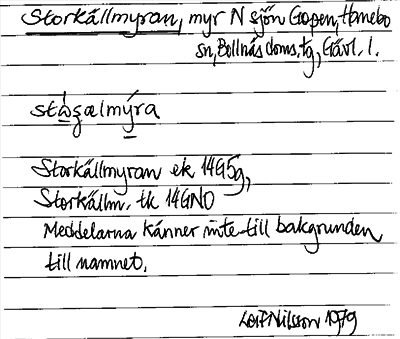 Storkällmyran, myr N sjön Gopen, Hanebo
sn, Bollnäs doms.tg, Gävl. l.
Storkällmyran ek 14G5g,
Storkällm. tk 14GNO
Meddelarna känner inte till bakgrunden
till namnet.
Leif Nilsson 1979